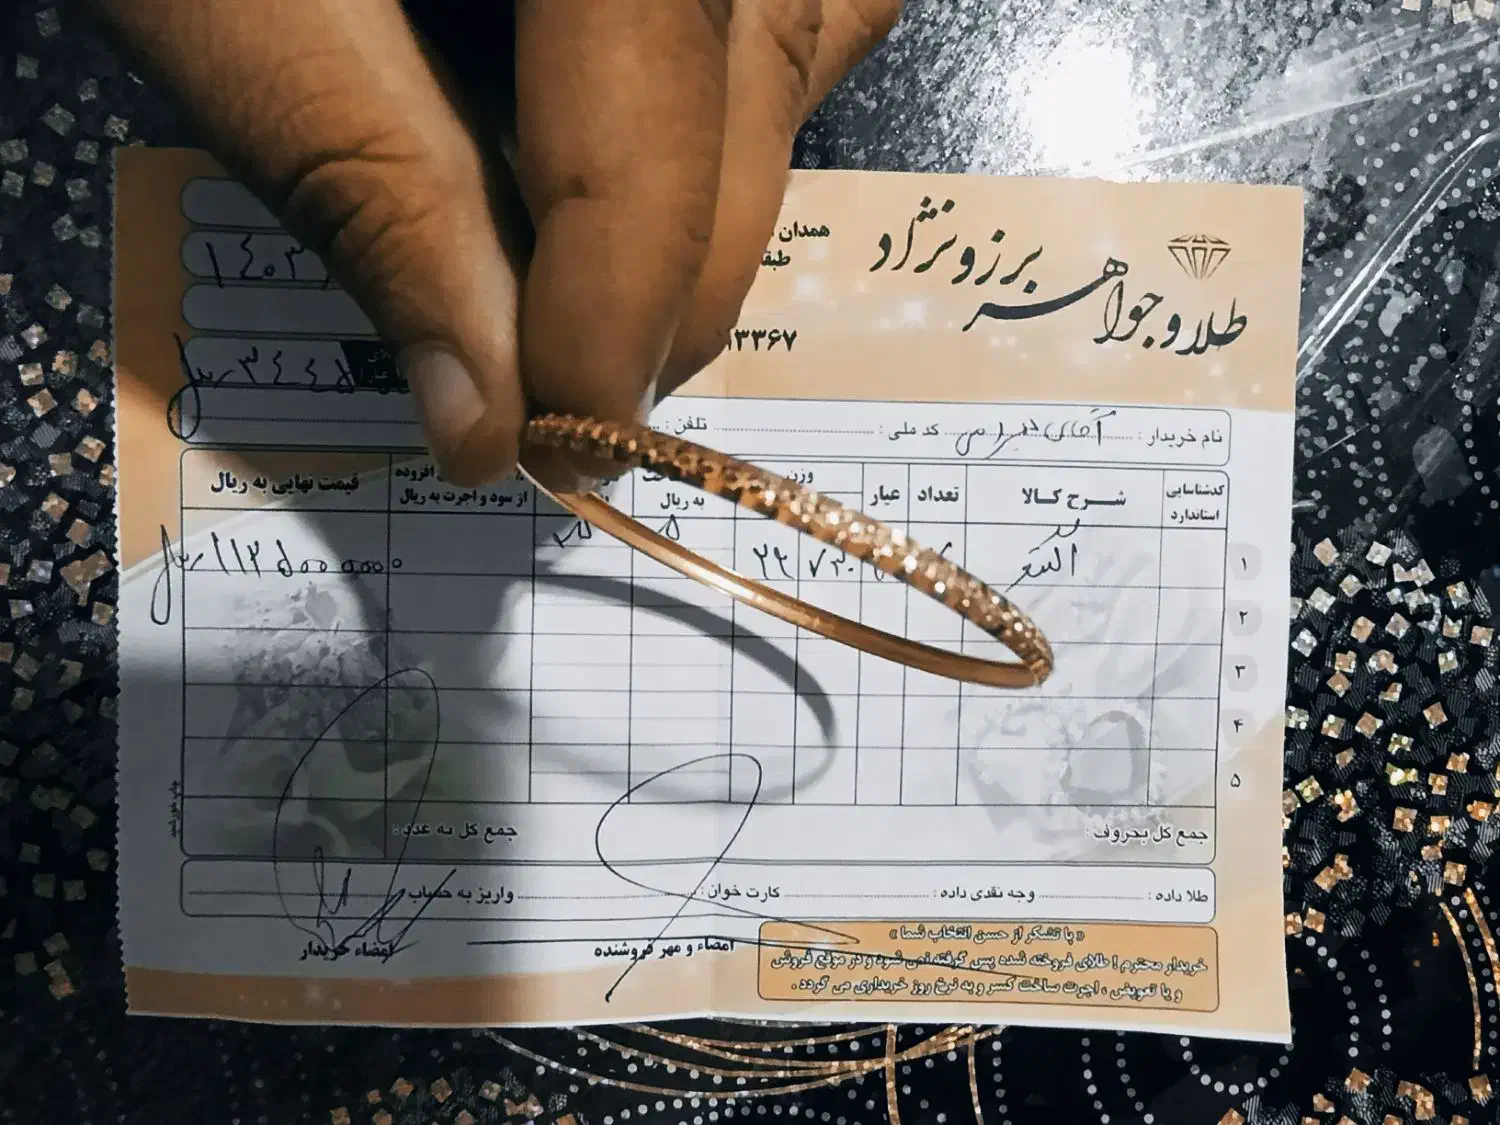 طلا و جواهر برزو نژاد
همدان
طبقه
۱۳۳۶۷
۱۴۰۳
ریال
نام خریدار : آقای
کد ملی :
تلفن :
کدشناسایی استاندارد
شرح کالا
تعداد
عیار
وزن
به ریال
افزوده از سود و اجرت به ریال
قیمت نهایی به ریال
۱ النگو ۷۳۰ ۱۱۳۵۰۰۰۰۰۰ ریال
۲
۳
۴
۵
جمع کل بحروف :
جمع کل به عدد :
طلا داده :
وجه نقدی داده :
کارت خوان :
واریز به حساب
امضاء و مهر فروشنده
امضاء خریدار
« با تشکر از حسن انتخاب شما »
خریدار محترم ! طلای فروخته شده پس گرفته نمی شود و در موقع فروش
و یا تعویض ، اجرت ساخت کسر و به نرخ روز خریداری می گردد .